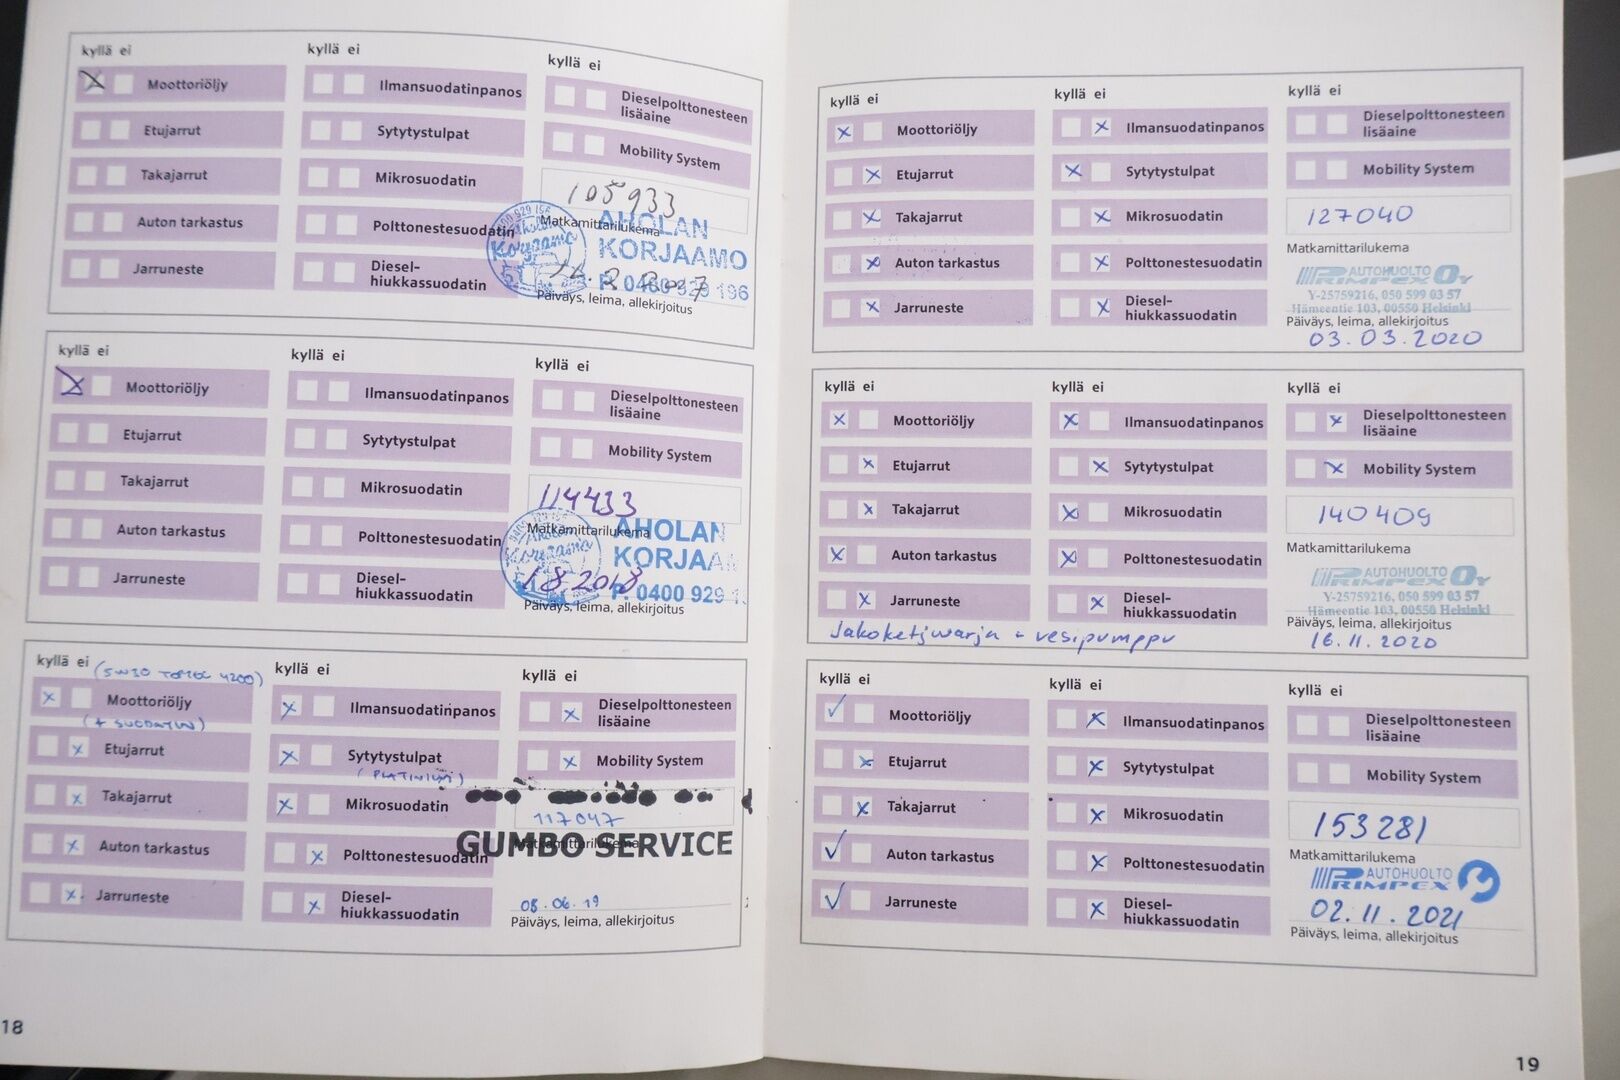 kyllä ei
Moottoriöljy
Etujarrut
Takajarrut
Auton tarkastus
Jarruneste
kyllä ei
Ilmansuodatinpanos
Sytytystulpat
Mikrosuodatin
Polttonestesuodatin
Diesel-
hiukkassuodatin
kyllä ei
Dieselpolttonesteen
lisäaine
Mobility System
105933
Matkamittarilukema
AHOLAN
KORJAAMO
P. 0400 929 196
Päiväys, leima, allekirjoitus
kyllä ei
Moottoriöljy
Etujarrut
Takajarrut
Auton tarkastus
Jarruneste
kyllä ei
Ilmansuodatinpanos
Sytytystulpat
Mikrosuodatin
Polttonestesuodatin
Diesel-
hiukkassuodatin
kyllä ei
Dieselpolttonesteen
lisäaine
Mobility System
114433
Matkamittarilukema
AHOLAN
KORJAA
P. 0400 929
1.8.2018
Päiväys, leima, allekirjoitus
kyllä ei
Moottoriöljy
(+ SUODATIN)
Etujarrut
Takajarrut
Auton tarkastus
Jarruneste
kyllä ei
Ilmansuodatinpanos
Sytytystulpat
(PLATINIUM)
Mikrosuodatin
Polttonestesuodatin
Diesel-
hiukkassuodatin
kyllä ei
Dieselpolttonesteen
lisäaine
Mobility System
117047
Matkamittarilukema
GUMBO SERVICE
08.06.19
Päiväys, leima, allekirjoitus
18
kyllä ei
Moottoriöljy
Etujarrut
Takajarrut
Auton tarkastus
Jarruneste
kyllä ei
Ilmansuodatinpanos
Sytytystulpat
Mikrosuodatin
Polttonestesuodatin
Diesel-
hiukkassuodatin
kyllä ei
Dieselpolttonesteen
lisäaine
Mobility System
127040
Matkamittarilukema
AUTOHUOLTO
PRIMPEX OY
Y-25759216, 050 599 03 57
Hämeentie 103, 00550 Helsinki
Päiväys, leima, allekirjoitus
03.03.2020
kyllä ei
Moottoriöljy
Etujarrut
Takajarrut
Auton tarkastus
Jarruneste
kyllä ei
Ilmansuodatinpanos
Sytytystulpat
Mikrosuodatin
Polttonestesuodatin
Diesel-
hiukkassuodatin
kyllä ei
Dieselpolttonesteen
lisäaine
Mobility System
140409
Matkamittarilukema
AUTOHUOLTO
PRIMPEX OY
Y-25759216, 050 599 03 57
Hämeentie 103, 00550 Helsinki
Päiväys, leima, allekirjoitus
16.11.2020
Jakoketjusarja + vesipumppu
kyllä ei
Moottoriöljy
Etujarrut
Takajarrut
Auton tarkastus
Jarruneste
kyllä ei
Ilmansuodatinpanos
Sytytystulpat
Mikrosuodatin
Polttonestesuodatin
Diesel-
hiukkassuodatin
kyllä ei
Dieselpolttonesteen
lisäaine
Mobility System
153281
Matkamittarilukema
AUTOHUOLTO
PRIMPEX
02.11.2021
Päiväys, leima, allekirjoitus
19